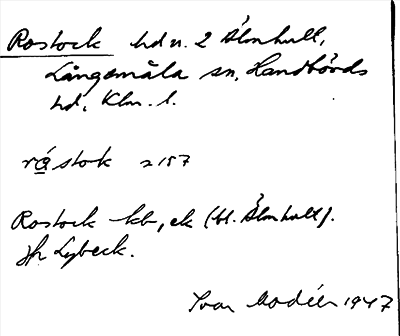 Rostock hd n. 2 Älmhult,
Långemåla sn, Handbörds
hd, Klm. l.
råstok s 157
Rostock kb, ek (bl. Älmhult).
jfr Lybeck.
Ivar Modéer 1947